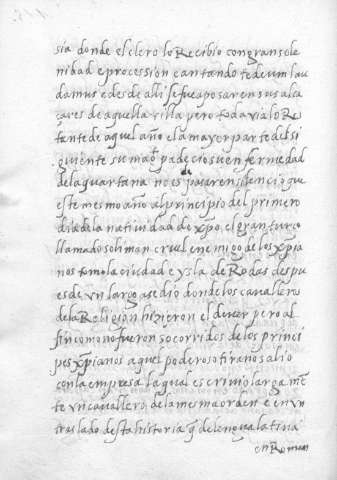 sia donde el clero lo Recibio con gran sole
nidad e procession e cantando te deum lau
damus e desde alli se fue a posar en sus alca
çares de aquella villa pero todavia lo Re
stante de aquel año e la mayor parte del si
guiente su magd padecio su enfermedad
de la quartana no es de pasar en silencio que
este mesmo año al principio del primero
dia de la natividad de xpo el gran turco
llamado soliman cruel enemigo de los xpia
nos tomo la ciudad e ysla de Rodas despu
es de vn largo asedio donde los cavalleros
de la Religion hizieron el dever pero al
fin como no fueron socorridos de los princi
pes xpianos aquel poderoso tirano salio
con la empresa la qual escrivio largamẽ
te vn cavallero de la mesma orden e en vn
traslado desta historia q̃ de lengua latina
en Roman